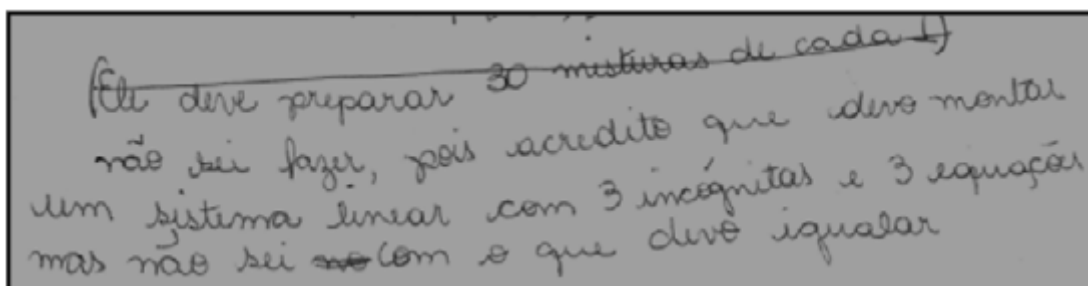 (Ele deve preparar 30 misturas de cada 1)
não sei fazer, pois acredito que devo montar
um sistema linear com 3 incógnitas e 3 equações
mas não sei com o que devo igualar